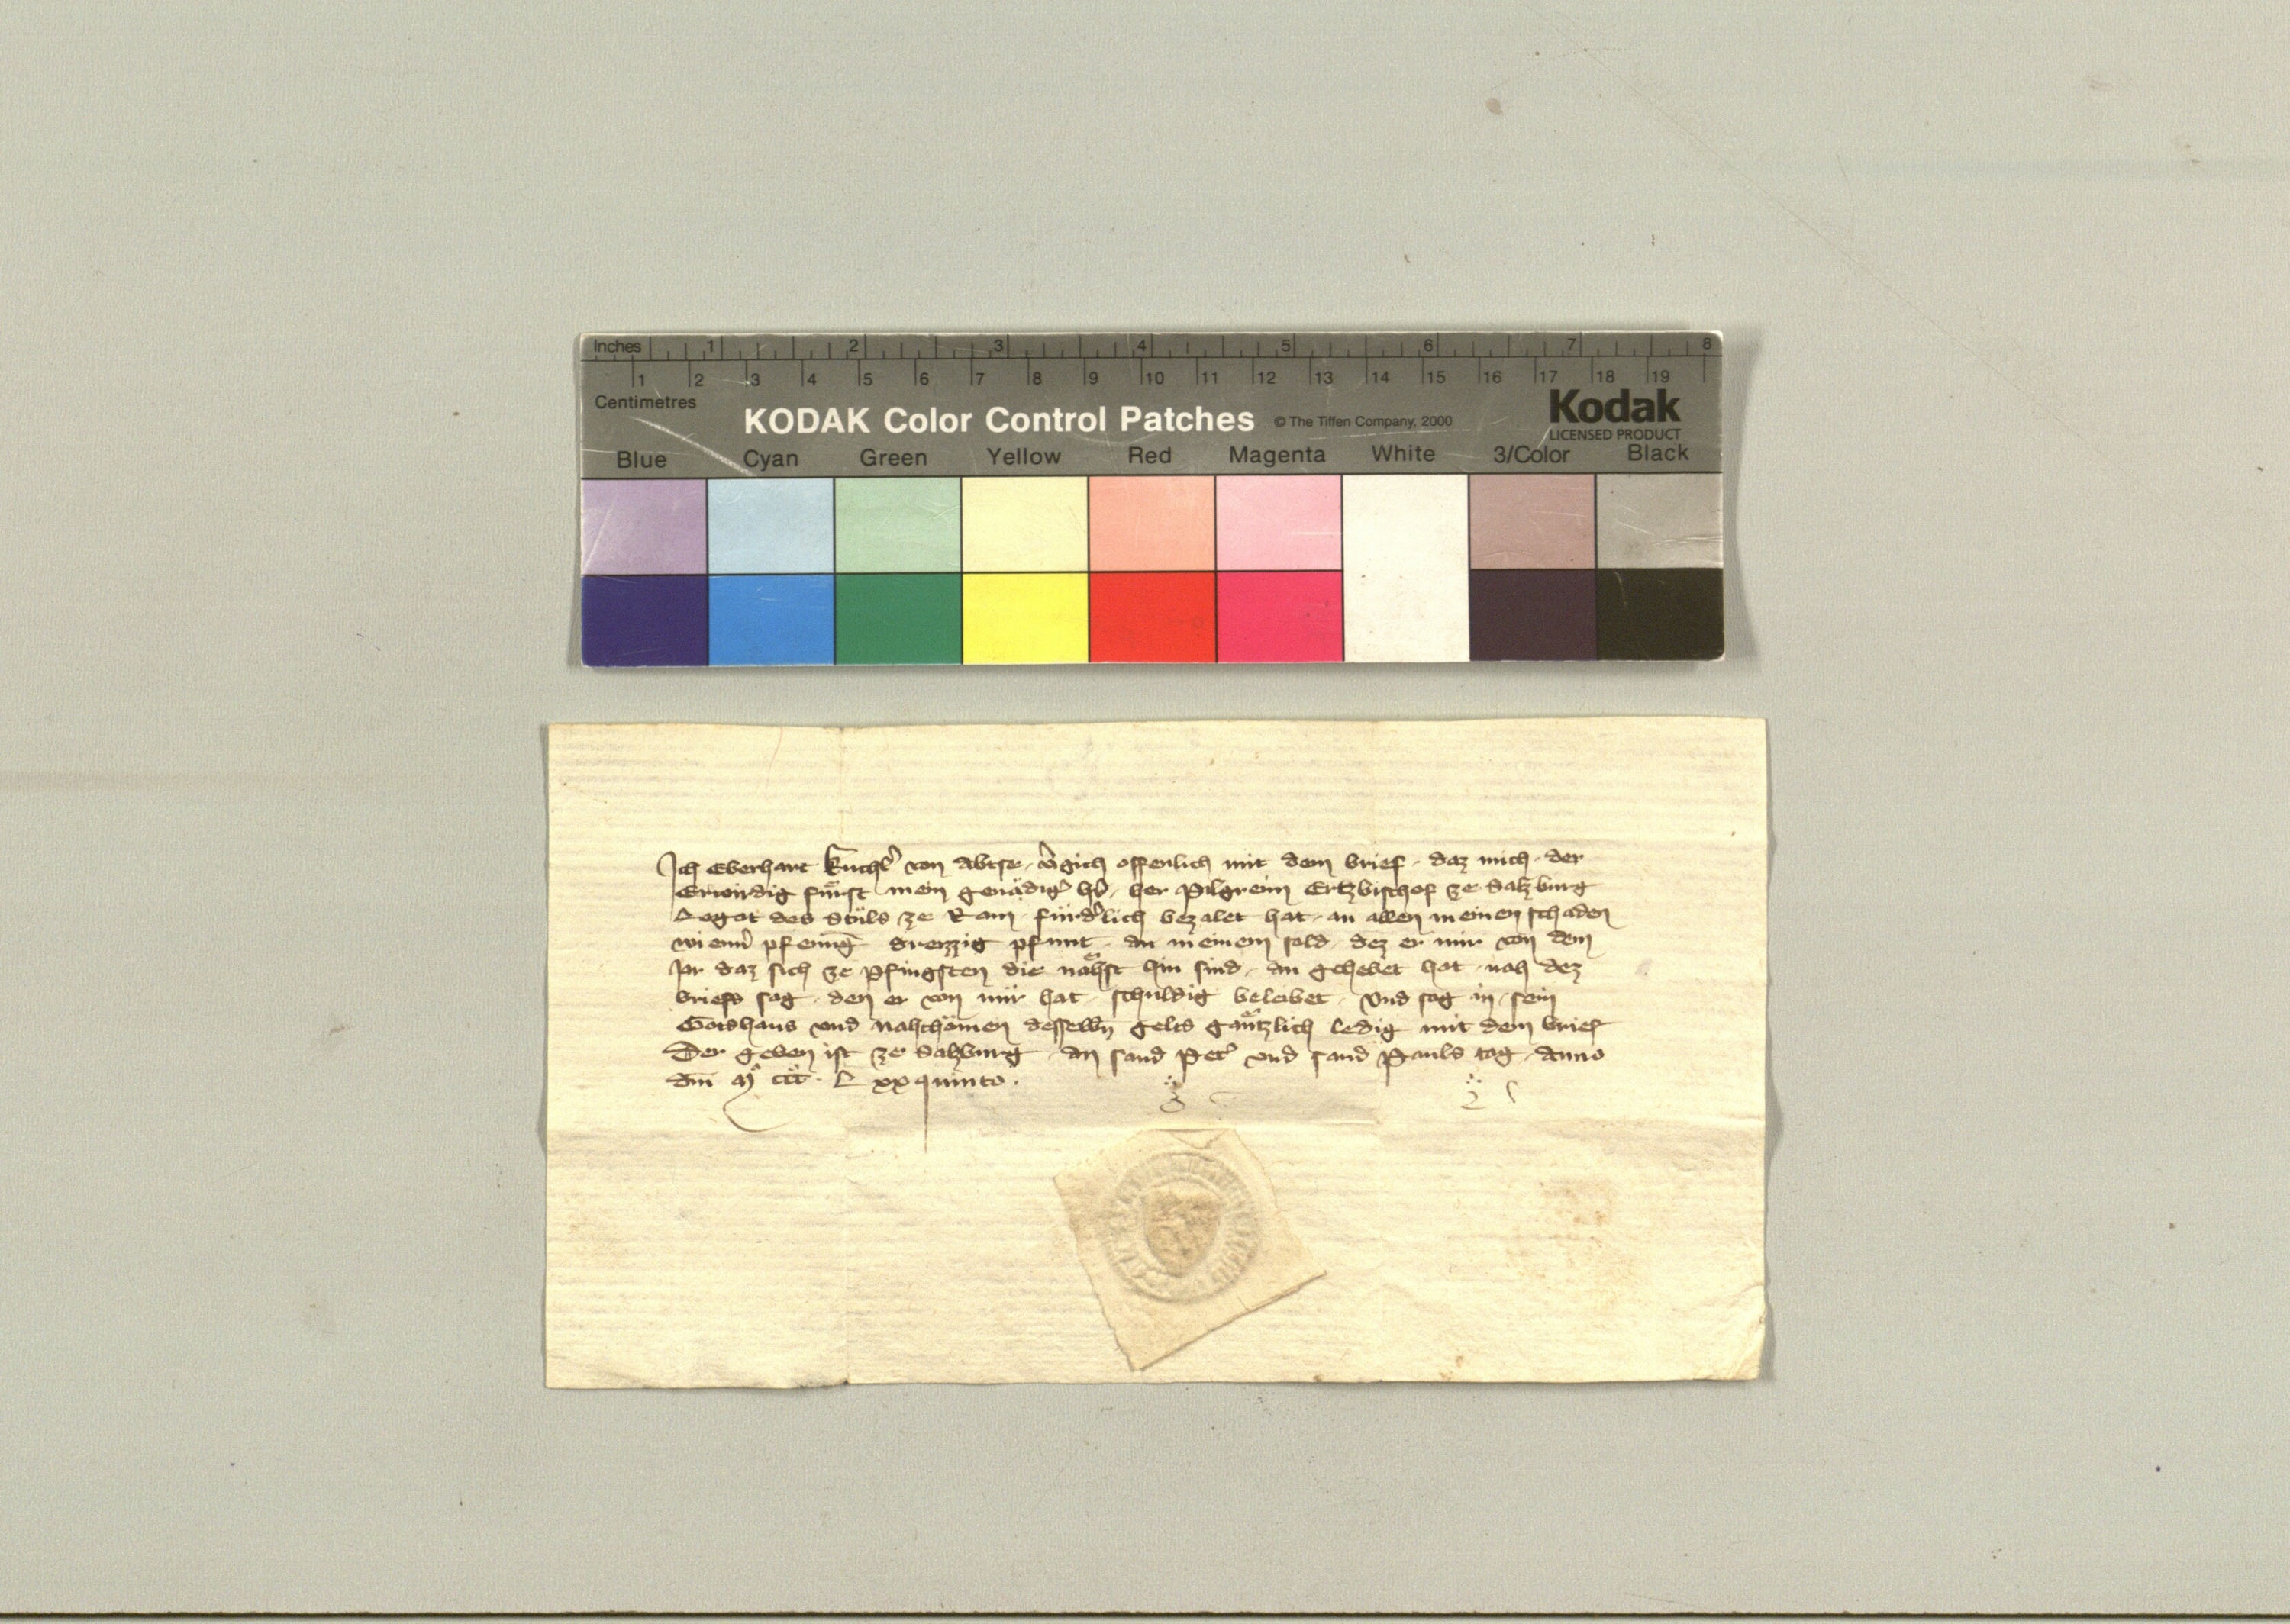 Inches 1 2 3 4 5 6 7 8
1 2 3 4 5 6 7 8 9 10 11 12 13 14 15 16 17 18 19
Centimetres
KODAK Color Control Patches © The Tiffen Company, 2000 Kodak
LICENSED PRODUCT
Blue Cyan Green Yellow Red Magenta White 3/Color Black
Ich Eberhart kuchl᾽ von Abtse v᾽gich offenlich mit dem brief daz mich der
Erwirdig fürst mein genädig᾽ h᾽r her Pilgreim Ertzbischof ze Salzburg
Legat des Stůls ze Rom fürd᾽lich bezalet hat an allen meinen schaden
wienn᾽ pfenīg dreizzig pfunt an meinem sold dez er mir von dem
Jar daz sich ze Pfingsten die nähst hin sind an gehebet hat nah dez
briefs sag den er von mir hat schuldig beleibet Und sag in sein
Gotshaus und nahchömen desselbn̄ gelts gäntzlich ledig mit dem brief
Der geben ist ze Salzburg an sand Pet᾽ und sand Pauls tag Anno
dm̄ Mº cccº Lxxquinto.